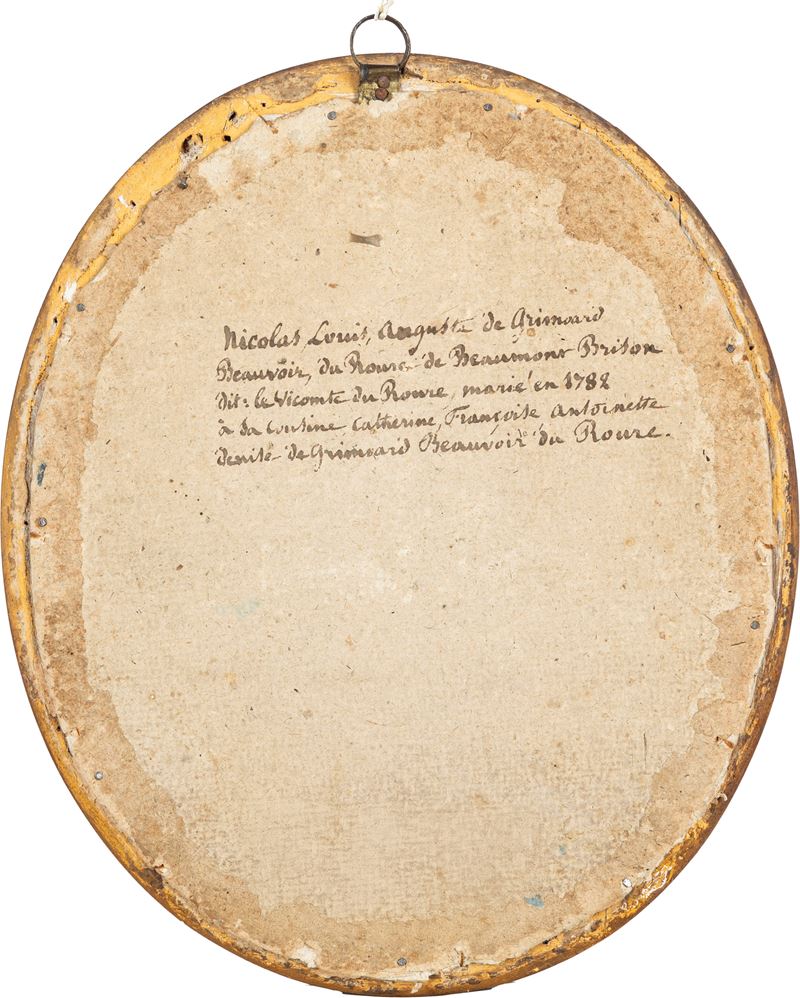 Nicolas Louis, Auguste de Grimoard
Beauvoir, du Roure de Beaumont Brison
dit: le Vicomte du Roure, marié en 1788
à sa cousine Catherine, Françoise Antoinette
denise de Grimoard Beauvoir du Roure.